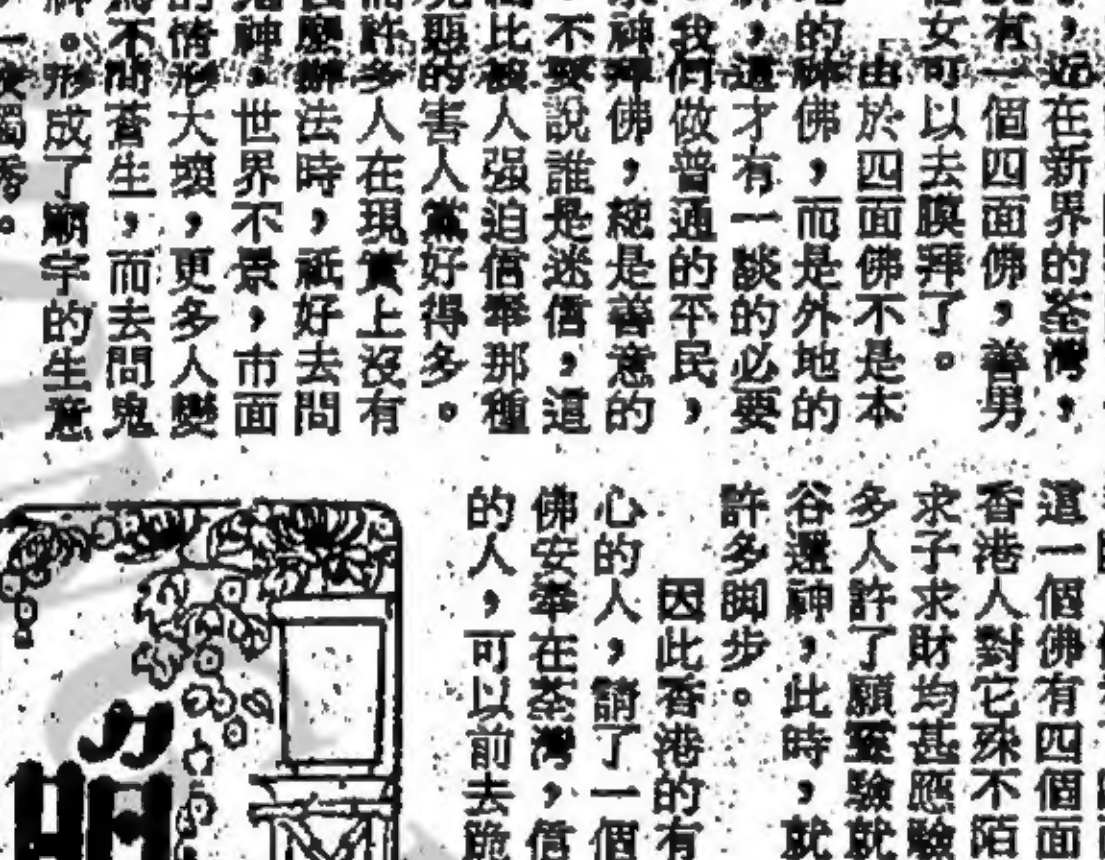 ，近在新界的荃灣，
有一個四面佛，善男
信女可以去膜拜了。
由於四面佛不是本
地的神佛，而是外地的
，這才有一談的必要
。我們做普通的平民，
神拜佛，總是善意的
。不要說誰是迷信，這
比被人强迫信奉那種
惡的害人黨好得多。
許多人在現實上沒有
麼辦法時，祇好去問
神。世界不景，市面
的情形大壞，更多人變
不問蒼生，而去問鬼
神。形成了廟宇的生意
一枝獨秀。
這一個佛有四個面
香港人對它殊不陌
求子求財均甚應驗
多人許了願靈驗就
谷還神，此時，就
許多脚步。
因此香港的有
心的人，請了一個
佛安奉在荃灣，信
的人，可以前去跪